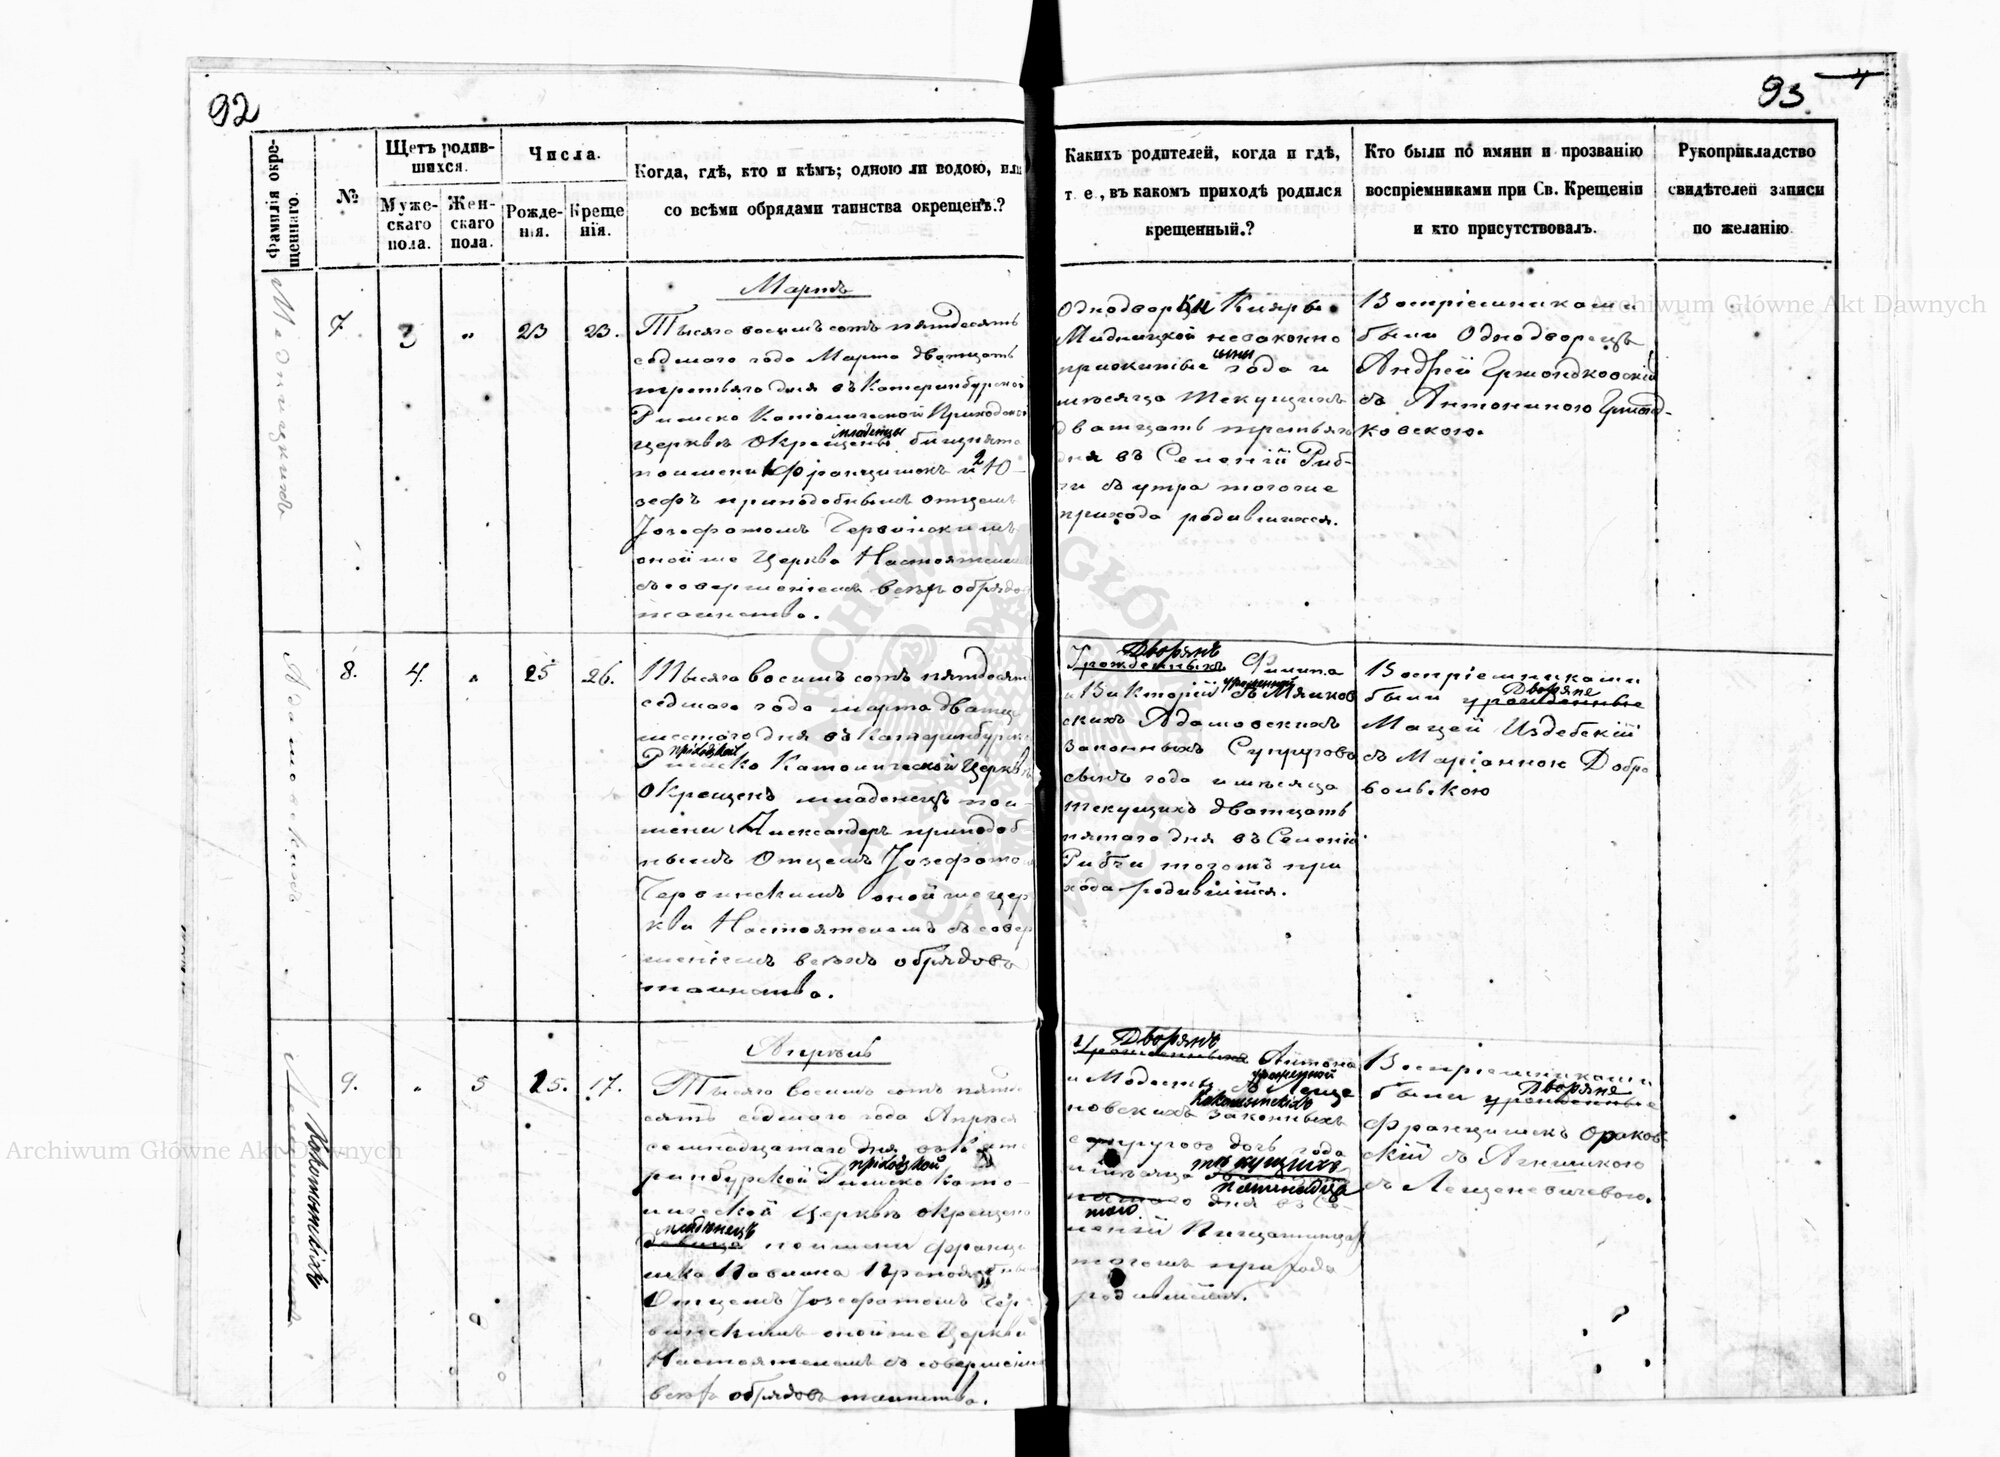 92
93
4
Фамилія окре-
щеннаго.
№
Щетъ родив-
шихся.
Муже-
скаго
пола.
Жен-
скаго
пола.
Числа.
Рожде-
нія.
Креще
нія.
Когда, гдѣ, кто и кѣмъ; одною ли водою, или
со всѣми обрядами таинства окрещенъ.?
Какихъ родителей, когда и гдѣ,
т. е., въ какомъ приходѣ родился
крещенный.?
Кто были по имяни и прозванію
воспріемниками при Св. Крещеніи
и кто присутствовалъ.
Рукоприкладство
свидѣтелей записи
по желанію
Мартъ
7.
3
„
23
23.
Тысяча восемь сотъ пятдесятъ
седмаго года Марта дватцать
третьяго дня въ Катеринбурской
Римско Католической Приходской
младенцы
церквѣ окрещены близнята
по имени 1 Францишекъ и 2 Ю-
зефъ преподобнымъ отцемъ
Іозефатомъ Червинскимъ
оной же Церкви Настоятелемъ
съ совершеніемъ всѣхъ обрядовъ
таинства.
Однодворки Клары
Мидницкой незаконно
сыны
прижитые года и
мѣсяца текущихъ
дватцать третьяго
дня въ Селеній Риб-
ки съ утра тогоже
прихода родившихся.
Воспріемниками
были Однодворецъ
Андрей Гржондковскій
съ Антониною Гржонд-
ковскою.
Адамовскихъ
8.
4.
„
25
26.
Тысяча восемь сотъ пятдесятъ
седмаго года марта дватц
шестого дня въ Катеринбурск
приходской
Римско Католической Церквѣ
окрещенъ младенецъ по и-
мени Александеръ преподоб
нымъ Отцемъ Іозефатом
Червинскимъ оной же цер
кви Настоятелемъ съ совер
шеніемъ всѣхъ обрядовъ
таинства.
Дворянъ
Урожденныхъ Филипа
урожденной
и Викторій съ Мянков
скихъ Адамовскихъ
законныхъ Супруговъ
сынъ года и мѣсяца
текущихъ дватцать
пятаго дня въ Селеній
Рибки тогожъ при
хода родившійся.
Воспріемниками
Дворяне
были урожденные
Мацей Издебскій
съ Маріанною Добро
вольскою
Апрѣль
9.
„
5
15.
17.
Тысяча восемь сотъ пятде
сятъ седмаго года Апрѣля
семнадцатаго дня въ Кате
приходской
ринбурской Римско Като-
лической Церквѣ окрещена
младенецъ
девица по имени Францы
шка Павлина Преподобнымъ
Отцемъ Іозефатомъ Чер
винскимъ оной же Церкви
Настоятелемъ съ совершені
всѣхъ обрядовъ таинства.
Дворянъ
Урожденныхъ Антона
урожденной
и Модесты съ
новскихъ законныхъ
супруговъ дочь года
и мѣсяца текущихъ
пятнадца
пятаго дня въ Се-
таго
леній
тогожъ прихода
родившаяся.
Воспріемниками
Дворяне
были урожденные
Францишекъ Ораков
скій съ Агнишкою
съ Лещеневичевою.
Archiwum Główne Akt Dawnych
Archiwum Główne Akt Dawnych
ARCHIWUM GŁÓWNE AKT DAWNYCH